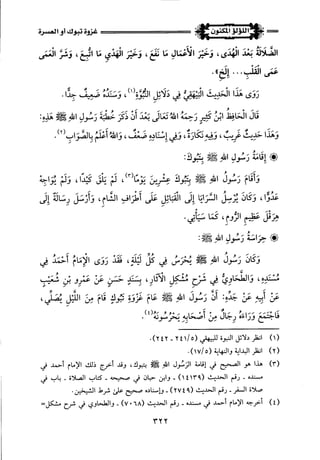 اللؤلؤ المكنون
غزوة تبوك أو العسرة
الضَّلَالَةُ بَعْدَ الْهُدَى، وَخَيْرُ الْأَعْمَالِ مَا نَفَعَ، وَخَيْرُ الْهَدْيِ مَا اتُّبِعَ، وَشَرُّ الْعَمَى
عَمَى الْقَلْبِ... إلخ».
رَوَى هَذَا الْحَدِيثَ الْبَيْهَقِيُّ فِي دَلَائِلِ النُّبُوَّةِ(١)، وَسَنَدُهُ ضَعِيفٌ جِدًّا.
قَالَ الْحَافِظُ ابْنُ كَثِيرٍ رَحِمَهُ اللهُ تَعَالَى بَعْدَ أَنْ ذَكَرَ خُطْبَةَ رَسُولِ اللهِ ﷺ هَذِهِ:
وَهَذَا حَدِيثٌ غَرِيبٌ، وَفِيهِ نَكَارَةٌ، وَفِي إِسْنَادِهِ ضَعْفٌ، وَاللهُ أَعْلَمُ بِالصَّوَابِ(٢).
◉ إِقَامَةُ رَسُولِ اللهِ ﷺ بِتَبُوكَ:
وَأَقَامَ رَسُولُ اللهِ ﷺ بِتَبُوكَ عِشْرِينَ يَوْمًا(٣)، لَمْ يَلْقَ كَيْدًا، وَلَمْ يُوَاجِهْ
عَدُوًّا، وَكَانَ يُرْسِلُ السَّرَايَا إِلَى الْقَبَائِلِ عَلَى أَطْرَافِ الشَّامِ، وَأَرْسَلَ رِسَالَةً إِلَى
هِرَقْلَ عَظِيمِ الرُّومِ، كَمَا سَيَأْتِي.
◉ حِرَاسَةُ رَسُولِ اللهِ ﷺ:
وَكَانَ رَسُولُ اللهِ ﷺ يُحْرَسُ فِي كُلِّ لَيْلَةٍ، فَقَدْ رَوَى الْإِمَامُ أَحْمَدُ فِي
مُسْنَدِهِ، وَالطَّحَاوِيُّ فِي شَرْحِ مُشْكِلِ الْآثَارِ، بِسَنَدٍ حَسَنٍ عَنْ عَمْرِو بْنِ شُعَيْبٍ
عَنْ أَبِيهِ عَنْ جَدِّهِ: أَنَّ رَسُولَ اللهِ ﷺ عَامَ غَزْوَةِ تَبُوكَ قَامَ مِنَ اللَّيْلِ يُصَلِّي،
فَاجْتَمَعَ وَرَاءَهُ رِجَالٌ مِنْ أَصْحَابِهِ يَحْرُسُونَهُ(٤).
(١) انظر دلائل النبوة للبيهقي (٥/ ٢٤١ - ٢٤٢).
(٢) انظر البداية والنهاية (٥/ ١٧).
(٣) هذا هو الصحيح في إقامة الرسول ﷺ بتبوك، وقد أخرج ذلك الإمام أحمد في
مسنده - رقم الحديث (١٤١٣٩) - وابن حبان في صحيحه - كتاب الصلاة - باب في
صلاة السفر - رقم الحديث (٢٧٤٩) - وإسناده صحيح على شرط الشيخين.
(٤) أخرجه الإمام أحمد في مسنده - رقم الحديث (٧٠٦٨) - والطحاوي في شرح مشكل=
٣٢٢